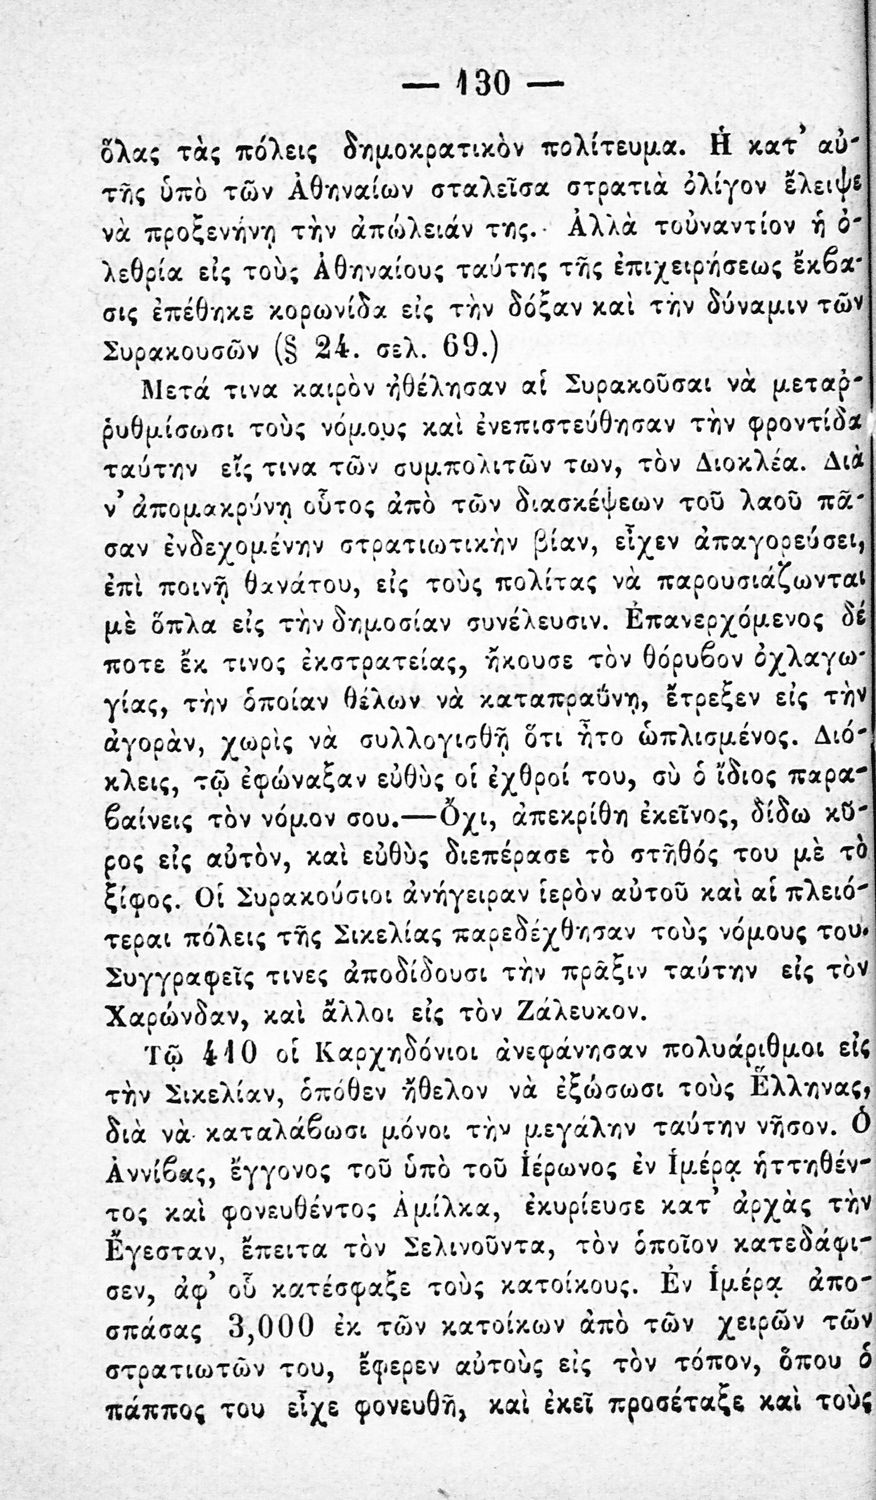 — 130 —
ὅλας τὰς πόλεις δημοκρατικὸν πολίτευμα. Ἡ κατ’ αὐ-
τῆς ὑπὸ τῶν Ἀθηναίων σταλεῖσα στρατιὰ ὀλίγον ἔλειψε
νὰ προξενήνῃ τὴν ἀπώλειάν της. Ἀλλὰ τοὐναντίον ἡ ὀ-
λεθρία εἰς τοὺς Ἀθηναίους ταύτης τῆς ἐπιχειρήσεως ἔκϐα-
σις ἐπέθηκε κορωνίδα εἰς τὴν δόξαν καὶ τὴν δύναμιν τῶν
Συρακουσῶν (§ 24. σελ. 69.)
Μετά τινα καιρὸν ἠθέλησαν αἱ Συρακοῦσαι νὰ μεταῤ-
ῥυθμίσωσι τοὺς νόμους καὶ ἐνεπιστεύθησαν τὴν φροντίδα
ταύτην εἴς τινα τῶν συμπολιτῶν των, τὸν Διοκλέα. Διὰ
ν’ ἀπομακρύνῃ οὗτος ἀπὸ τῶν διασκέψεων τοῦ λαοῦ πᾶ-
σαν ἐνδεχομένην στρατιωτικὴν βίαν, εἶχεν ἀπαγορεύσει,
ἐπὶ ποινῇ θανάτου, εἰς τοὺς πολίτας νὰ παρουσιάζωνται
μὲ ὅπλα εἰς τὴν δημοσίαν συνέλευσιν. Ἐπανερχόμενος δέ
ποτε ἔκ τινος ἐκστρατείας, ἤκουσε τὸν θόρυϐον ὀχλαγω-
γίας, τὴν ὁποίαν θέλων νὰ καταπραΰνῃ, ἔτρεξεν εἰς τὴν
ἀγορὰν, χωρὶς νὰ συλλογισθῇ ὅτι ἦτο ὡπλισμένος. Διό-
κλεις, τῷ ἐφώναξαν εὐθὺς οἱ ἐχθροί του, σὺ ὁ ἴδιος παρα-
ϐαίνεις τὸν νόμον σου.—Ὄχι, ἀπεκρίθη ἐκεῖνος, δίδω κῦ-
ρος εἰς αὐτὸν, καὶ εὐθὺς διεπέρασε τὸ στῆθός του μὲ τὸ
ξίφος. Οἱ Συρακούσιοι ἀνήγειραν ἱερὸν αὐτοῦ καὶ αἱ πλειό-
τεραι πόλεις τῆς Σικελίας παρεδέχθησαν τοὺς νόμους του.
Συγγραφεῖς τινες ἀποδίδουσι τὴν πρᾶξιν ταύτην εἰς τὸν
Χαρώνδαν, καὶ ἄλλοι εἰς τὸν Ζάλευκον.
Τῷ 410 οἱ Καρχηδόνιοι ἀνεφάνησαν πολυάριθμοι εἰς
τὴν Σικελίαν, ὁπόθεν ἤθελον νὰ ἐξώσωσι τοὺς Ἕλληνας,
διὰ νὰ καταλάϐωσι μόνοι τὴν μεγάλην ταύτην νῆσον. Ὁ
Ἀννίϐας, ἔγγονος τοῦ ὑπὸ τοῦ Ἱέρωνος ἐν Ἱμέρᾳ ἡττηθέν-
τος καὶ φονευθέντος Ἀμίλκα, ἐκυρίευσε κατ’ ἀρχὰς τὴν
Ἔγεσταν, ἔπειτα τὸν Σελινοῦντα, τὸν ὁποῖον κατεδάφι-
σεν, ἀφ’ οὗ κατέσφαξε τοὺς κατοίκους. Ἐν Ἱμέρᾳ ἀπο-
σπάσας 3,000 ἐκ τῶν κατοίκων ἀπὸ τῶν χειρῶν τῶν
στρατιωτῶν του, ἔφερεν αὐτοὺς εἰς τὸν τόπον, ὅπου ὁ
πάππος του εἶχε φονευθῆ, καὶ ἐκεῖ προσέταξε καὶ τοὺς